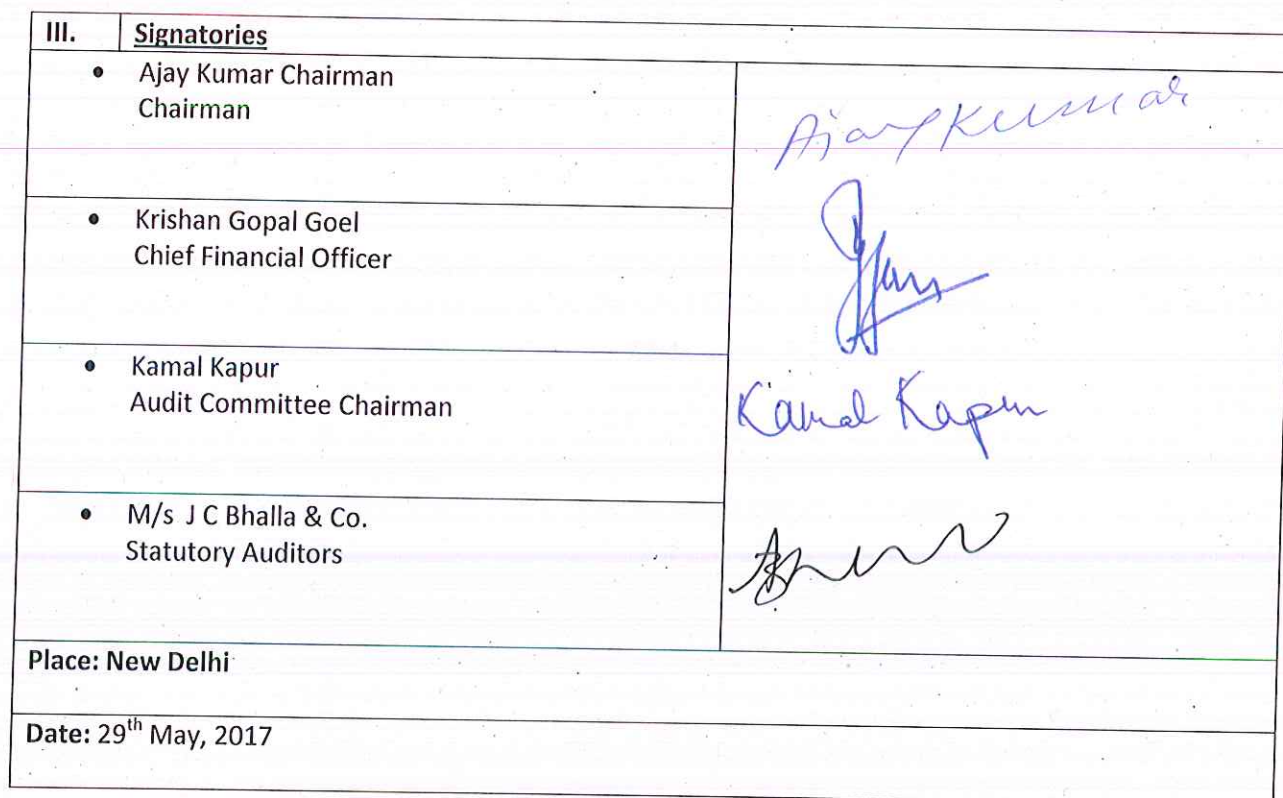 III. Signatories
• Ajay Kumar Chairman
Chairman
Ajay Kumar
• Krishan Gopal Goel
Chief Financial Officer
• Kamal Kapur
Audit Committee Chairman
Kamal Kapur
• M/s J C Bhalla & Co.
Statutory Auditors
Place: New Delhi
Date: 29th May, 2017